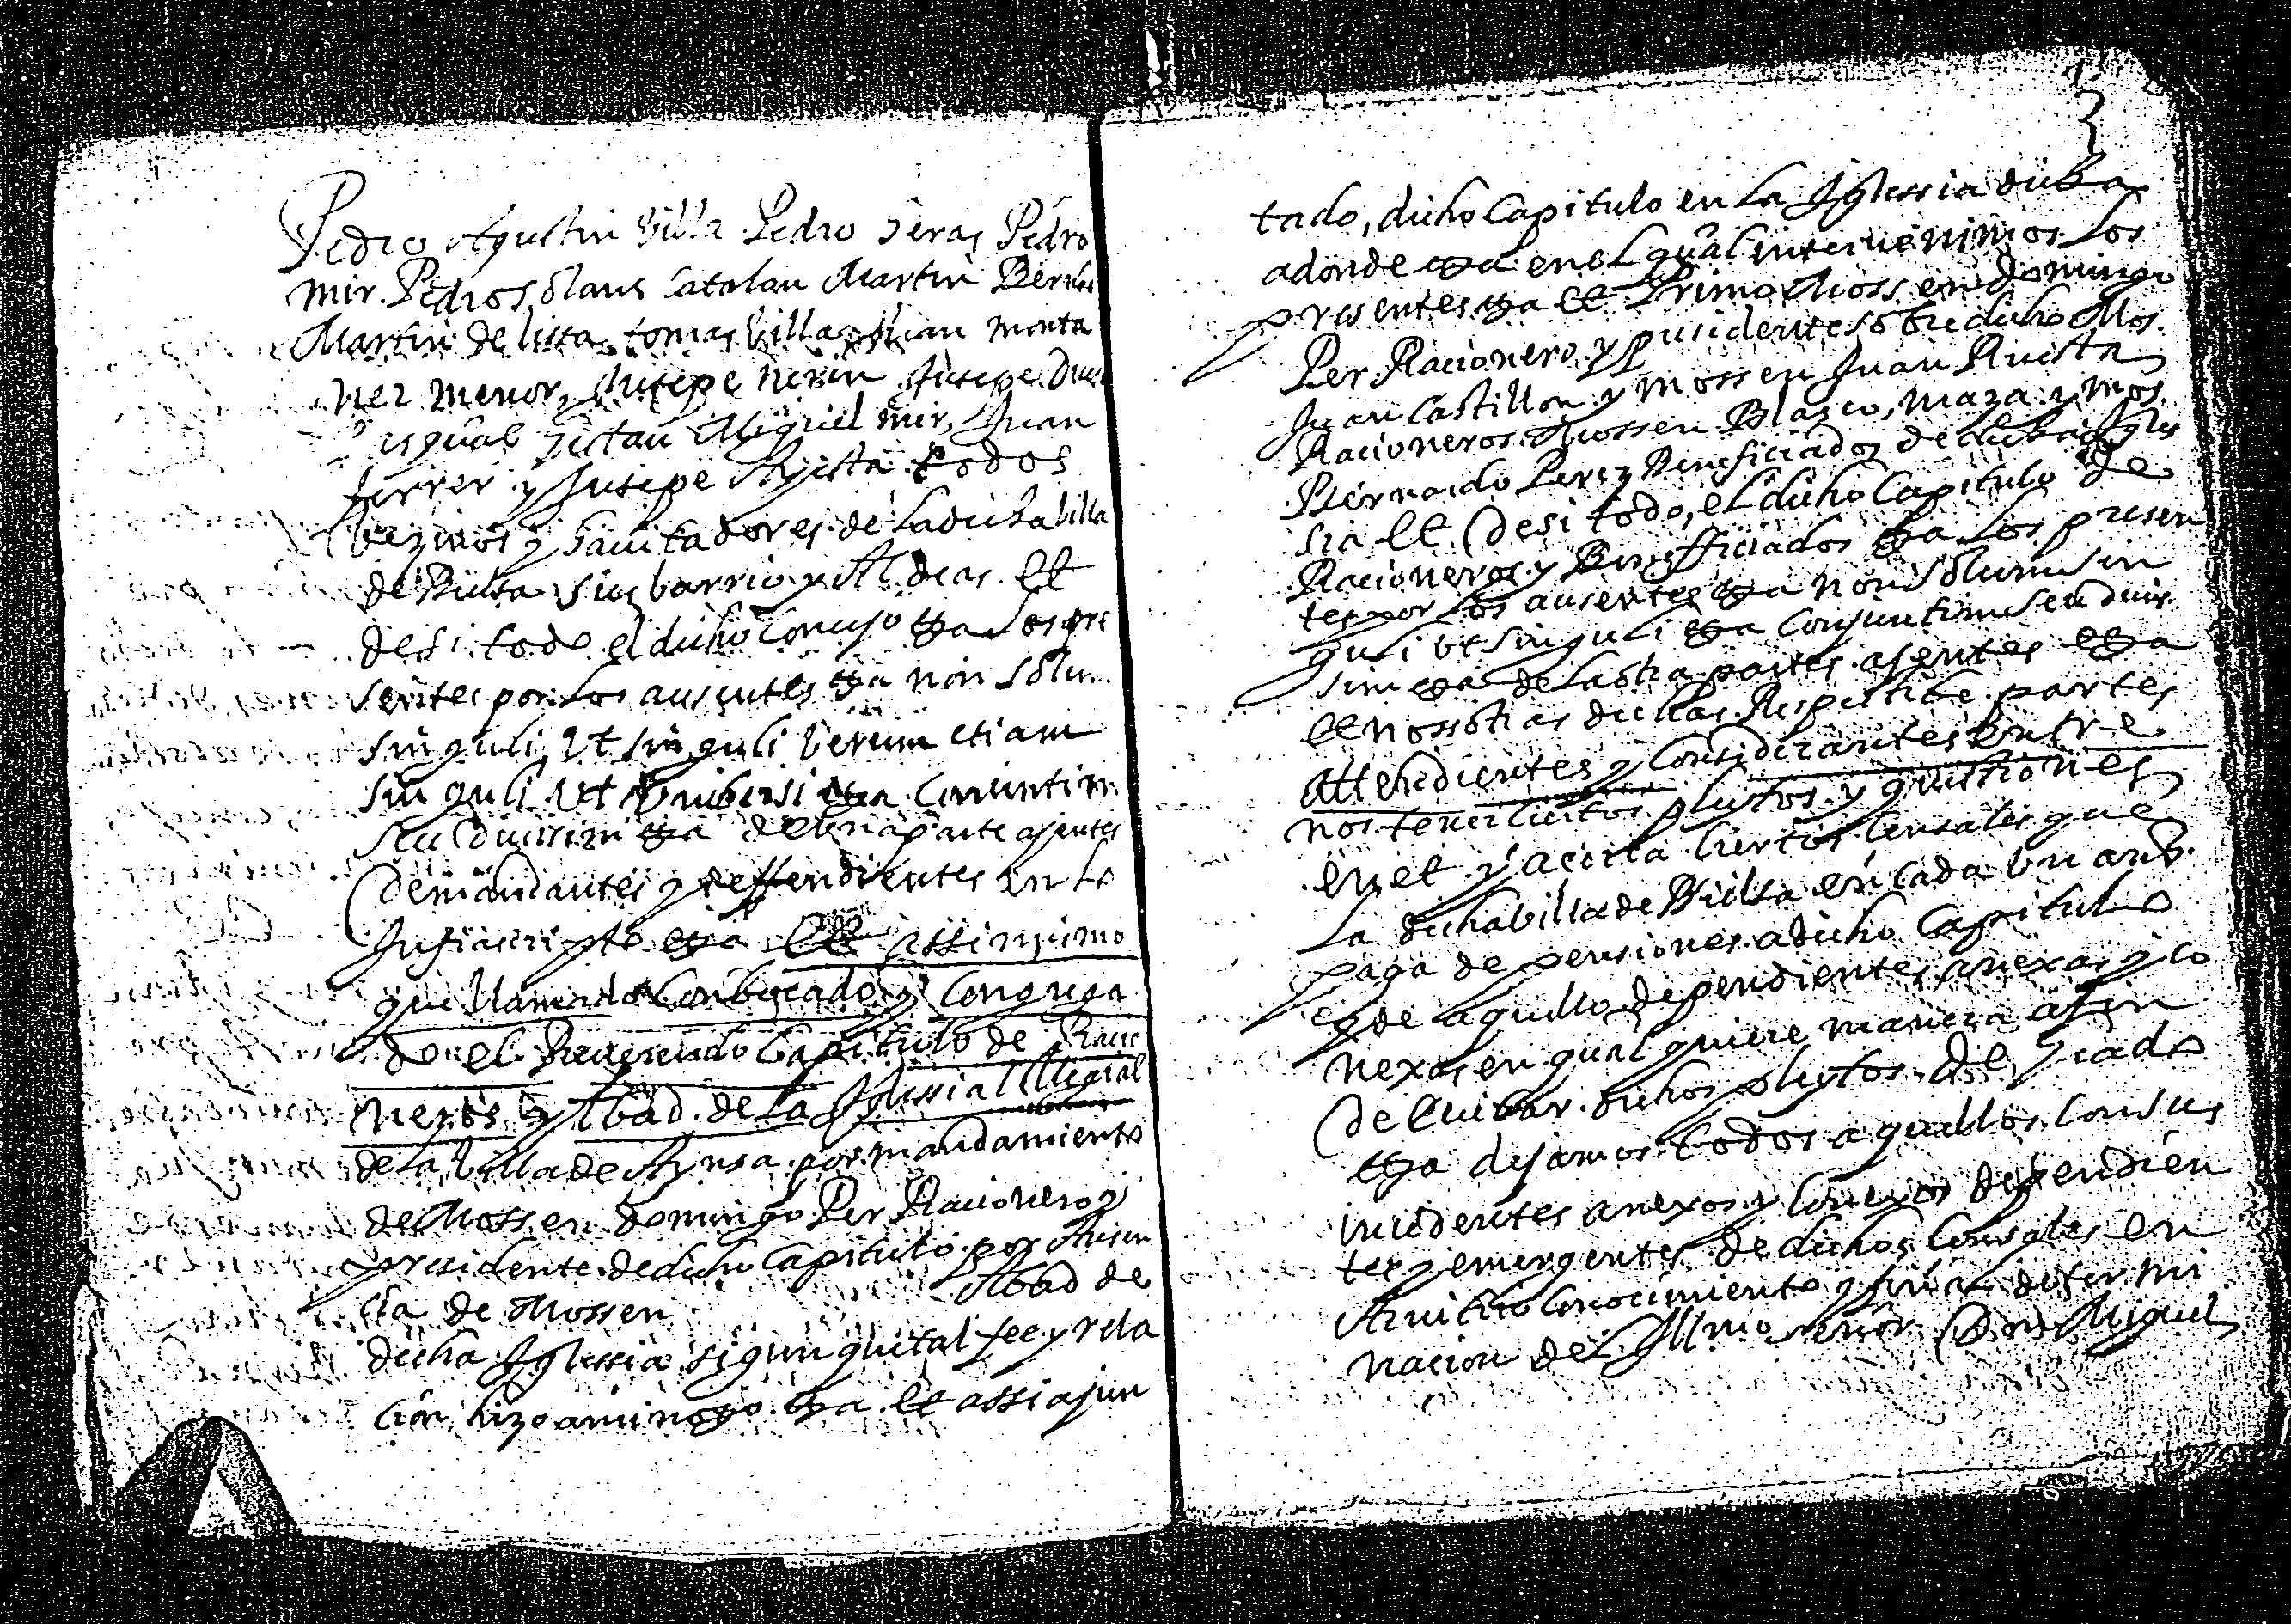 Pedro Agustin Villa Pedro Seras Pedro
mir. Pedro Solans Catalan Martin
Martin de lista tomas Villa Juan monta
ner menor y Jusepe nerin Jusepe
Miguel mir, Juan
ferrer y Jusepe todos
Vezinos y hauitadores de la dicha billa
de Bielsa sus barrios y Aldeas. et
desi todo el dicho Concejo los pre
sentes por los ausentes non solum
singuli, Vt singuli Verum etiam
singuli Vt Vnibersi Coniuntim
seu Duissim de Vna parte agentes
Demandantes y deffendientes en lo
Infrascripto assimismo
que llamado Conbocado y Congrega
do el Reuerendo Capitulo de Racio
neros y Abad de la Iglessia Collegial
de la Villa de Aynsa por mandamiento
de Mossen Domingo Per Racionero y
presidente de dicho Capitulo por Ausen
cia de Mossen Abad de
dicha Iglessia sigun que tal fee y rela
cion hizo a mi noto. et assi ajun
3
tado, dicho Capitulo en la Iglessia dicha
adonde en el qual interuenimos los
presentes et Primo Mossen domingo
Per Racionero y presidente sobre dicho Mos.
Juan Castillon y mossen Juan
Racioneros Mossen Blasco, maza y mos.
Bernardo Perez Beneficiados de dicha Igles
sia et Desi todo, el dicho Capitulo de
Racioneros y Benefficiados los presen
tes por los ausentes non solum sin
guli vt singuli Conjuntim seu diuis
sim de la otra partes agentes
et nossotras dichas Respectibe partes
attendientes y Considerantes Entre
nos tener ciertos pleytos y questiones
en et y acerca Ciertos Censales que
la dicha billa de Bielsa en cada Vn año.
paga de pensiones a dicho Capitulo
y de aquello dependientes anexas y co
nexas en qual quiere manera a fin
De euitar dichos pleytos de grado
dejamos todos aquellos con sus
incidentes anexos y conexos dependien
tes y emergentes de dichos Censales en
Conocimiento y final determi
nacion del Illmo señor Don Miguel